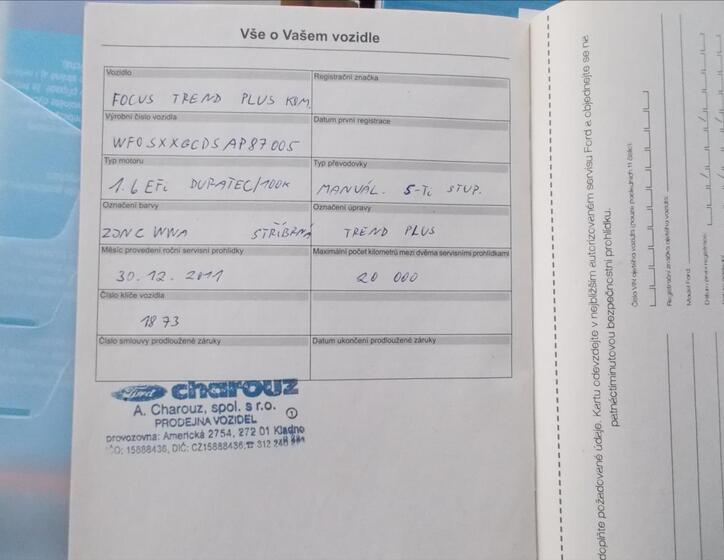 Vše o Vašem vozidle
Vozidlo
FOCUS TREND PLUS KOM.
Registrační značka
Výrobní číslo vozidla
WF0SXXGCDSAP87005
Datum první registrace
Typ motoru
1.6 EFi DURATEC/100k
Typ převodovky
MANUÁL. 5-Ti STUP.
Označení barvy
ZJNC WWA STŘÍBRNÁ
Označení úpravy
TREND PLUS
Měsíc provedení roční servisní prohlídky
30.12.2011
Maximální počet kilometrů mezi dvěma servisními prohlídkami
20 000
Číslo klíče vozidla
1873
Číslo smlouvy prodloužené záruky
Datum ukončení prodloužené záruky
Ford charouz
A. Charouz, spol. s r.o.
PRODEJNA VOZIDEL 1
provozovna: Americká 2754, 272 01 Kladno
IČO: 15888436, DIČ: CZ15888436, ☎ 312 248
doplňte požadované údaje. Kartu odevzdejte v nejbližším autorizovaném servisu Ford a objednejte se na
patnáctiminutovou bezpečnostní prohlídku.
Číslo VIN ojetého vozidla (pouze posledních 11 čísel):
Registrační značka ojetého vozidla:
Model Ford:
Datum první registrace: